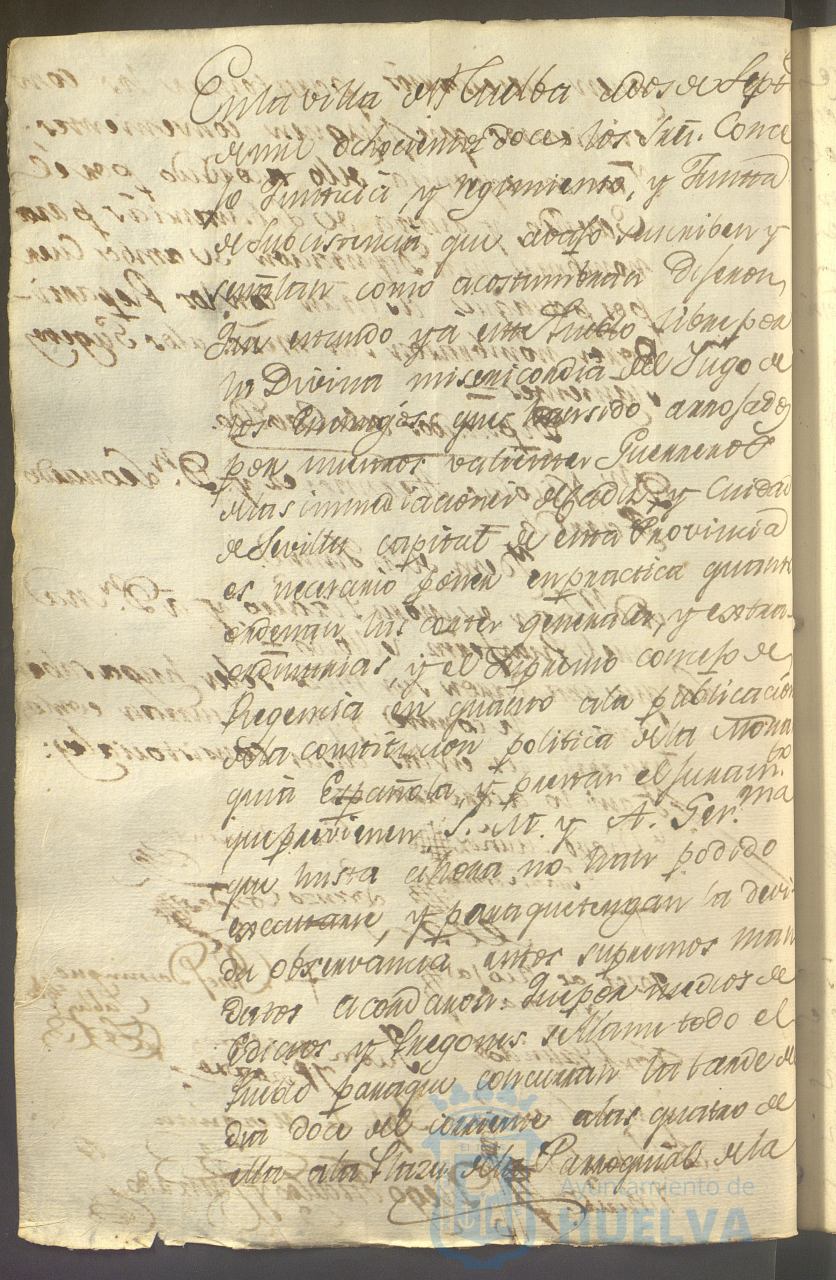 En la villa de Huelba a dos de Septe
de mil ochocientos doce los Sres. Conce
jo Justicia y regimiento, y Junta
de Subsistencia que abajo suscriben y
señalan como acostumbran Dijeron,
Que estando ya este Pueblo libre por
la Divina misericordia del Yugo de
los Enemigos que han sido arrojados
por nuestros valientes Guerreros
de las inmediaciones de Cadiz, y Ciudad
de Sevilla capital de esta Provincia
es necesario poner en practica quanto
ordenan las cortes generales, y extraor
dinarias y el Supremo Concejo de
Regencia en quanto a la publicación
de la constitucion politica de la Monar
quia Española y prestar el juramto
que previenen S. M. y A. Serma
que hasta ahora no han podido
executarse, y para que tengan la devi
da observancia estos supremos man
datos acordaron: Que por medios de
Edictos y Pregones se llame todo el
Pueblo para que concurran la tarde del
dia doce del corriente a las quatro de
ella a la Plaza de la Parroquial de la
Ayuntamiento de
HUELVA